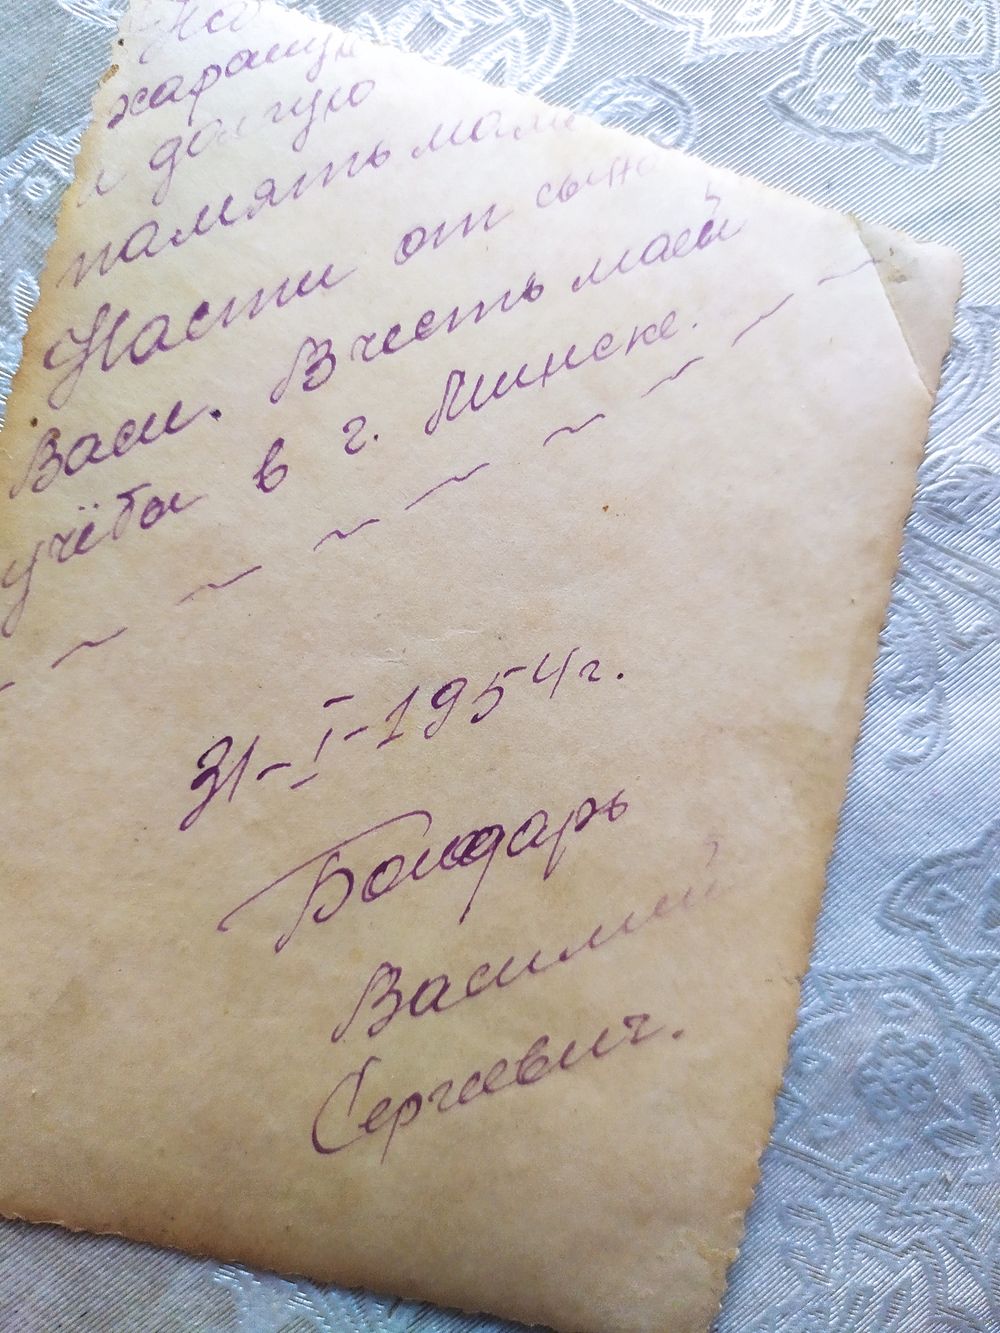 На
харашую
и долгую
память маме
Насти от сына
Васи. В честь маей
учёбы в г. Минске.
31-I-1954г.
Бондарь
Василий
Сергеевич.